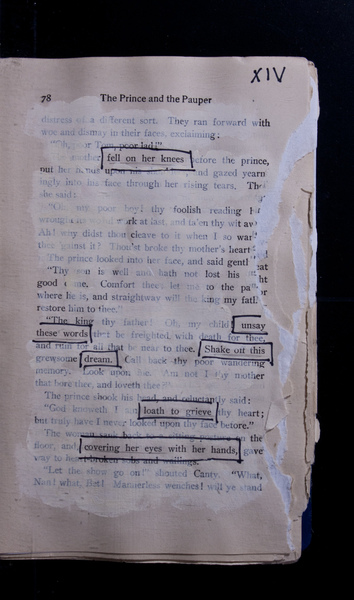 XIV
78 The Prince and the Pauper
distress of a different sort. They ran forward with
woe and dismay in their faces, exclaiming:
Tom, poor lad!"
fell on her knees before the prince,
put her hands upon and gazed yearn
ingly into his face through her rising tears. The
she said:
poor boy! thy foolish reading
at last, and ta'en thy wit
Ah! why didst thou cleave to it when I so war
thee 'gainst it? Thou'st broke thy mother's heart
The prince looked into her face, and said gentl
"Thy is well and hath not lost his
good Comfort thee: let me to the pa
where he is, and straightway will the king my fath
restore him to thee."
"The king thy father! Oh, my child! unsay
these words that be freighted with death for thee,
and ruin for all that be near to thee. Shake off this
grewsome dream. Call back thy poor wandering
memory. Look upon me. Am not I thy mother
that bore thee, and loveth thee
The prince shook his head, and reluctantly said:
"God knoweth I am loath to grieve thy heart;
but truly have I never looked upon thy face before."
The woman sank the
floor, and covering her eyes with her hands, gave
way to heart-broken sobs and wailings.
"Let the show go on!" shouted Canty. "What,
Nan! what, Bet! Mannerless wenches! will ye stand